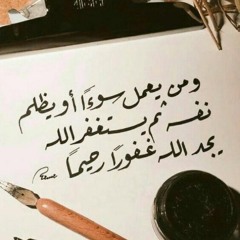 ومن يعمل سوءًا أو يظلم
نفسه ثم يستغفر الله
يجد الله غفورًا رحيمًا